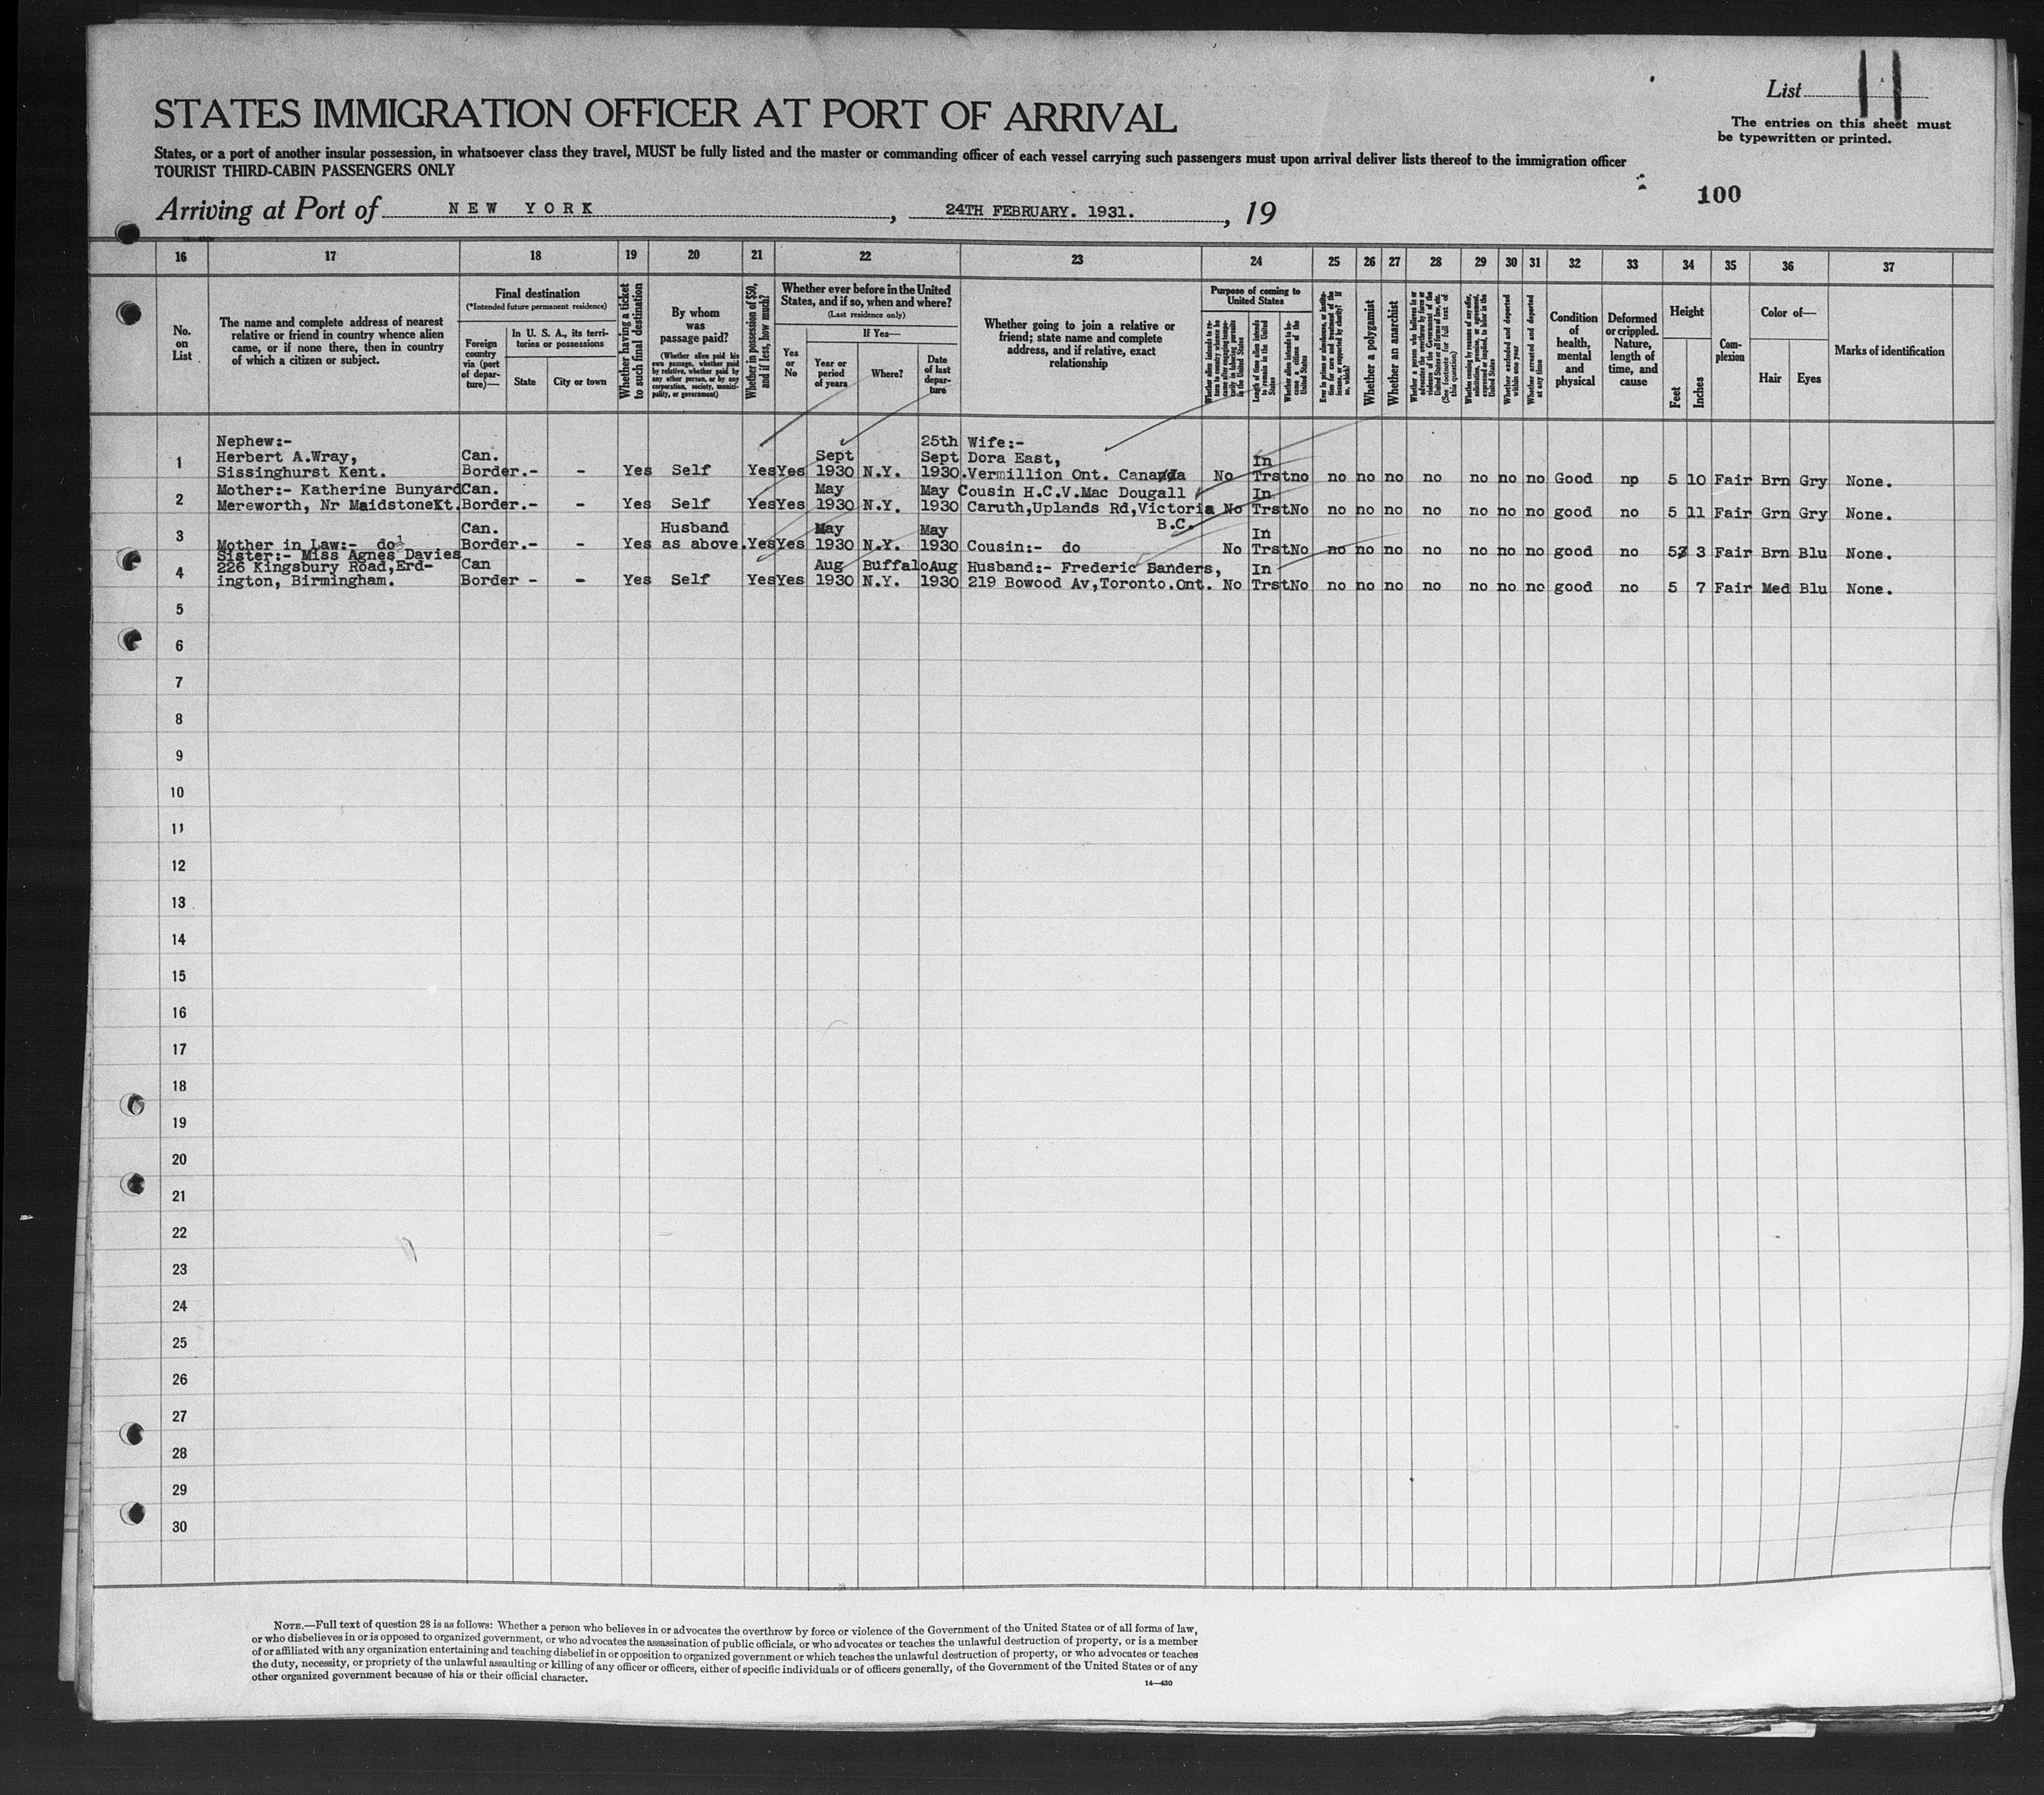 List 11
STATES IMMIGRATION OFFICER AT PORT OF ARRIVAL
The entries on this sheet must
be typewritten or printed.
States, or a port of another insular possession, in whatsoever class they travel, MUST be fully listed and the master or commanding officer of each vessel carrying such passengers must upon arrival deliver lists thereof to the immigration officer
TOURIST THIRD-CABIN PASSENGERS ONLY
100
Arriving at Port of NEW YORK, 24TH FEBRUARY. 1931., 19
16 17 18 19 20 21 22 23 24 25 26 27 28 29 30 31 32 33 34 35 36 37
No.
on
List
The name and complete address of nearest
relative or friend in country whence alien
came, or if none there, then in country
of which a citizen or subject.
Final destination
(*Intended future permanent residence)
Foreign
country
via (port
of depar-
ture)—
In U. S. A., its terri-
tories or possessions
State
City or town
Whether having a ticket
to such final destination
By whom
was
passage paid?
(Whether alien paid his
own passage, whether paid
by relative, whether paid by
any other person, or by any
corporation, society, munici-
pality, or government)
Whether in possession of $50,
and if less, how much?
Whether ever before in the United
States, and if so, when and where?
(Last residence only)
Yes
or
No
If Yes—
Year or
period
of years
Where?
Date
of last
depar-
ture
Whether going to join a relative or
friend; state name and complete
address, and if relative, exact
relationship
Purpose of coming to
United States
Length of time alien intends
to remain in the United
States
Whether alien intends to be-
come a citizen of the
United States
Whether a polygamist
Whether an anarchist
Whether excluded and deported
within one year
Whether arrested and deported
at any time
Condition
of
health,
mental
and
physical
Deformed
or crippled.
Nature,
length of
time, and
cause
Height
Feet
Inches
Com-
plexion
Color of—
Hair
Eyes
Marks of identification
Nephew:- 25th Wife:-
Herbert A.Wray, Can. Sept Sept Dora East, In
1 Sissinghurst Kent. Border.- - Yes Self Yes Yes 1930 N.Y. 1930. Vermillion Ont. Canada No Trst no no no no no no no no Good no 5 10 Fair Brn Gry None.
Mother:- Katherine Bunyard Can. May May Cousin H.C.V.Mac Dougall In
2 Mereworth, Nr Maidstone Kt. Border.- - Yes Self Yes Yes 1930 N.Y. 1930 Caruth,Uplands Rd,Victoria No Trst No no no no no no no no good no 5 11 Fair Grn Gry None.
B.C.
Can. Husband May May In
3 Mother in Law:- do Border.- - Yes as above. Yes Yes 1930 N.Y. 1930 Cousin:- do No Trst No no no no no no no no good no 5 3 Fair Brn Blu None.
Sister:- Miss Agnes Davies
226 Kingsbury Road,Erd- Can Aug Buffalo Aug Husband:- Frederic Sanders, In
4 ington, Birmingham. Border - - Yes Self Yes Yes 1930 N.Y. 1930 219 Bowood Av,Toronto.Ont. No Trst No no no no no no no no good no 5 7 Fair Med Blu None.
5
6
7
8
9
10
11
12
13
14
15
16
17
18
19
20
21
22
23
24
25
26
27
28
29
30
NOTE.—Full text of question 28 is as follows: Whether a person who believes in or advocates the overthrow by force or violence of the Government of the United States or of all forms of law,
or who disbelieves in or is opposed to organized government, or who advocates the assassination of public officials, or who advocates or teaches the unlawful destruction of property, or is a member
of or affiliated with any organization entertaining and teaching disbelief in or opposition to organized government or which teaches the unlawful destruction of property, or who advocates or teaches
the duty, necessity, or propriety of the unlawful assaulting or killing of any officer or officers, either of specific individuals or of officers generally, of the Government of the United States or of any
other organized government because of his or their official character.
14—430